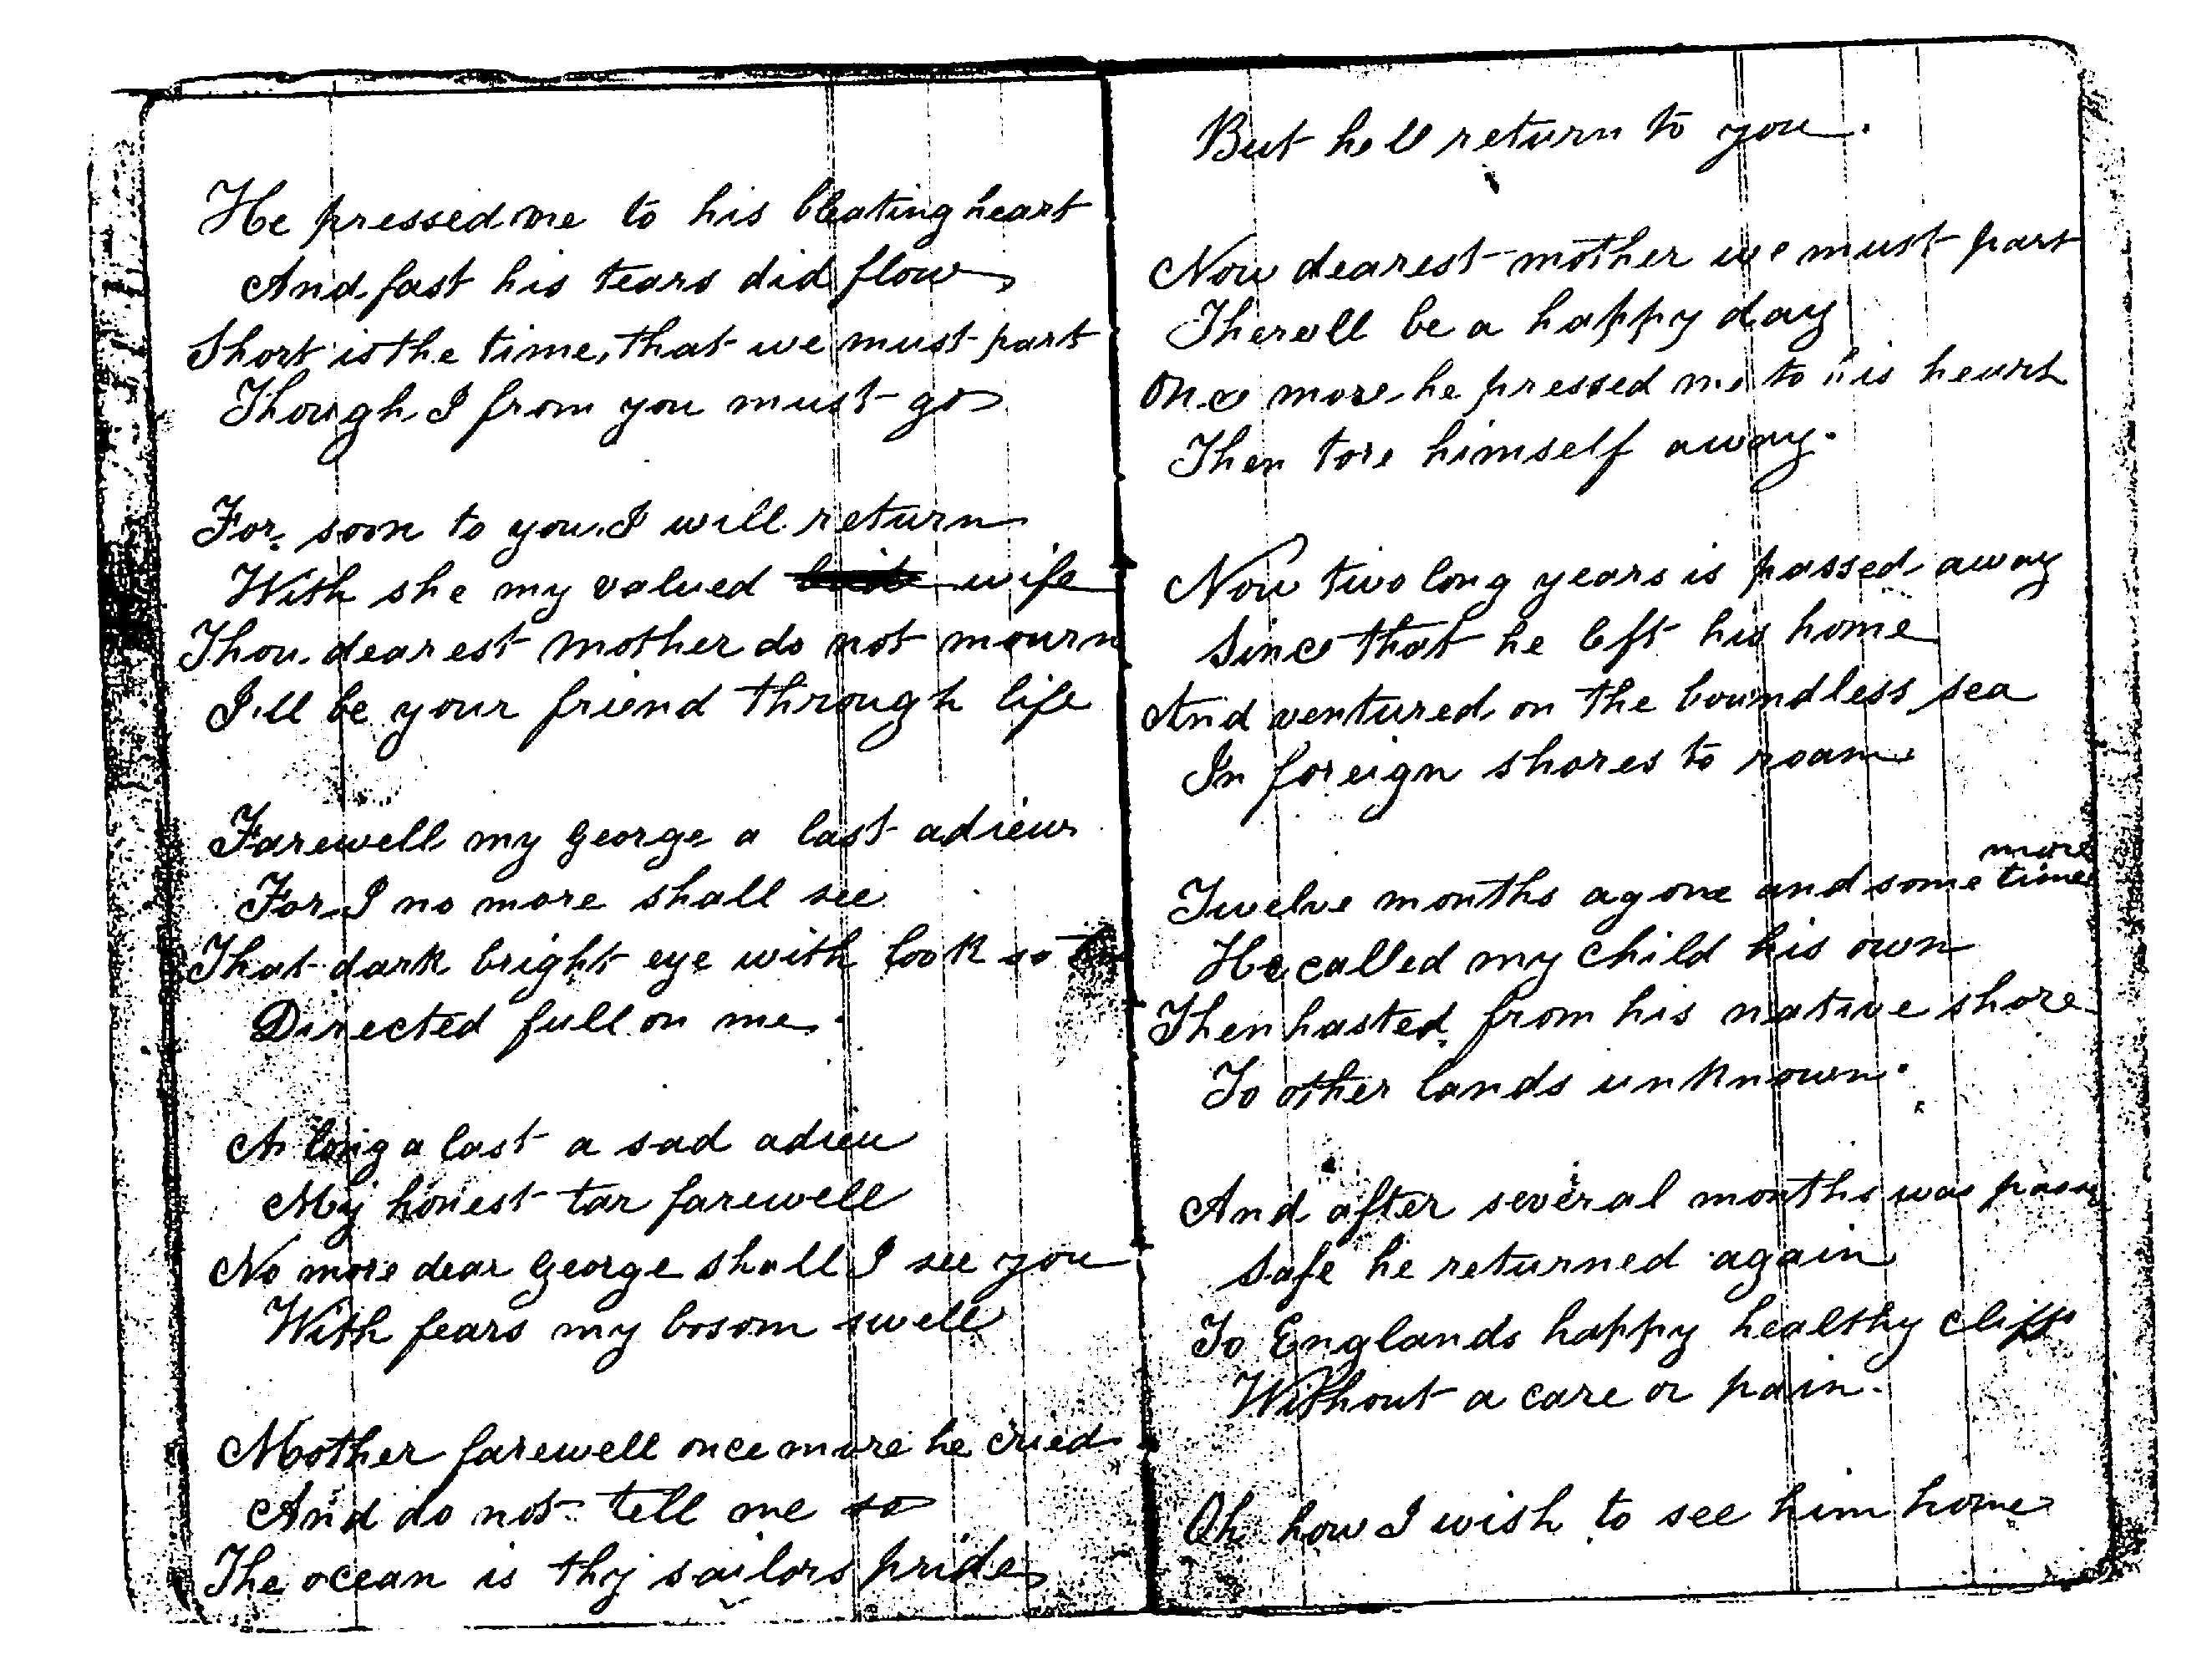 He pressed me to his beating heart
And fast his tears did flow
Short is the time, that we must part
Though I from you must go
For soon to you I will return
With she my valued wife
Thou dearest mother do not mourn
I'll be your friend through life
Farewell my George a last adieu
For I no more shall see
That dark bright eye with look so
Directed full on me.
A long a last a sad adieu
My honest tar farewell
No more dear George shall I see you
With fears my bosom swell
Mother farewell once more he cried
And do not tell me so
The ocean is thy sailors pride
But hell return to you.
Now dearest mother we must part
Therell be a happy day
Once more he pressed me to his heart
Then tore himself away.
Now two long years is passed away
Since that he left his home
And ventured on the boundless sea
In foreign shores to roam
more
Twelve months agone and some time
He called my child his own
Then hasted from his native shore
To other lands unknown.
And after several months was
Safe he returned again
To Englands happy healthy cliffs
Without a care or pain.
Oh how I wish to see him home